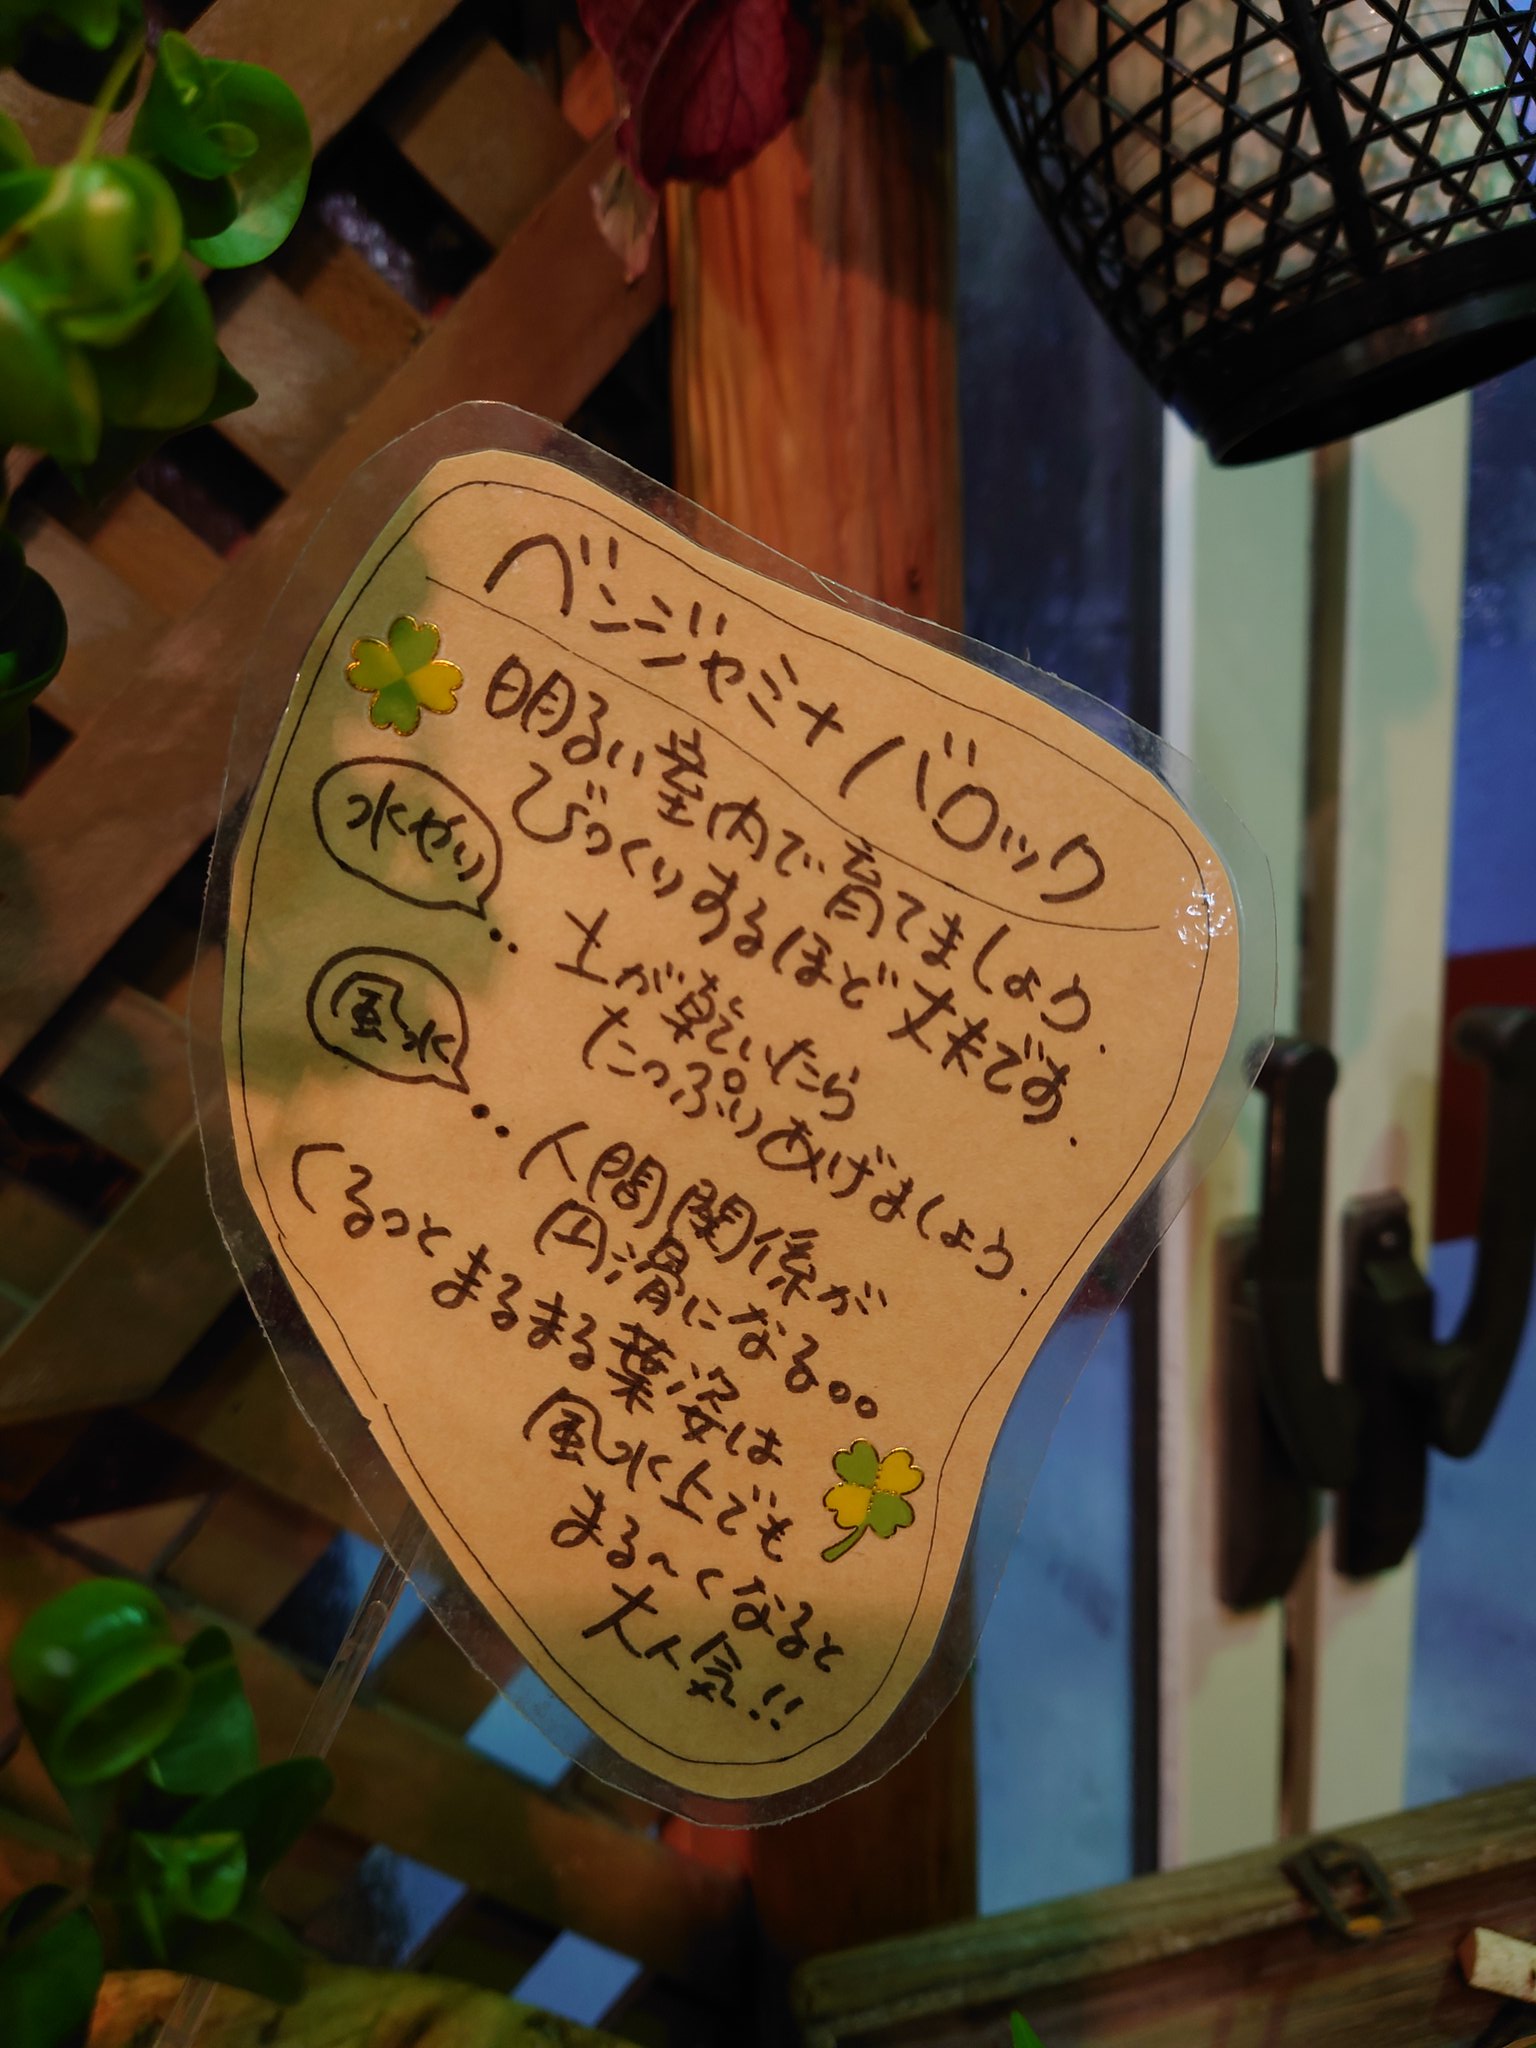 ベンジャミナ バロック
明るい室内で育てましょう.
びっくりするほど丈夫です.
水やり ‥ 土が乾いたら
たっぷりあげましょう.
風水 ‥ 人間関係が
円滑になる。。
くるっとまるまる葉姿は
風水上でも
まる〜くなると
大人気!!